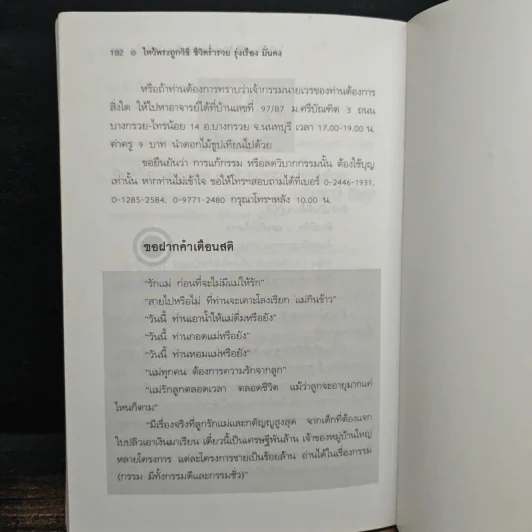 192 ๏ ไหว้พระถูกวิธี ชีวิตร่ำรวย รุ่งเรือง มั่นคง
หรือถ้าท่านต้องการทราบว่าเจ้ากรรมนายเวรของท่านต้องการ
สิ่งใด ให้ไปหาอาจารย์ได้ที่บ้านเลขที่ 97/87 ม.ศรีบัณฑิต 3 ถนน
บางกรวย-ไทรน้อย 14 อ.บางกรวย จ.นนทบุรี เวลา 17.00-19.00 น.
ค่าครู 9 บาท นำดอกไม้ธูปเทียนไปด้วย
ขอยืนยันว่า การแก้กรรม หรือลดวิบากกรรมนั้น ต้องใช้บุญ
เท่านั้น หากท่านไม่เข้าใจ ขอให้โทรฯสอบถามได้ที่เบอร์ 0-2446-1931,
0-1285-2584, 0-9771-2480 กรุณาโทรฯหลัง 10.00 น.
ขอฝากคำเตือนสติ
"รักแม่ ก่อนที่จะไม่มีแม่ให้รัก"
"สายไปหรือไม่ ที่ท่านจะเคาะโลงเรียก แม่กินข้าว"
"วันนี้ ท่านเอาน้ำให้แม่ดื่มหรือยัง"
"วันนี้ ท่านกอดแม่หรือยัง"
"วันนี้ ท่านหอมแม่หรือยัง"
"แม่ทุกคน ต้องการความรักจากลูก"
"แม่รักลูกตลอดเวลา ตลอดชีวิต แม้ว่าลูกจะอายุมากแค่
ไหนก็ตาม"
"มีเรื่องจริงที่ลูกรักแม่และกตัญญูสูงสุด จากเด็กที่ต้องแจก
ใบปลิวเอาเงินมาเรียน เดี๋ยวนี้เป็นเศรษฐีพันล้าน เจ้าของหมู่บ้านใหญ่
หลายโครงการ แต่ละโครงการขายเป็นร้อยล้าน อ่านได้ในเรื่องกรรม
(กรรม มีทั้งกรรมดีและกรรมชั่ว)"